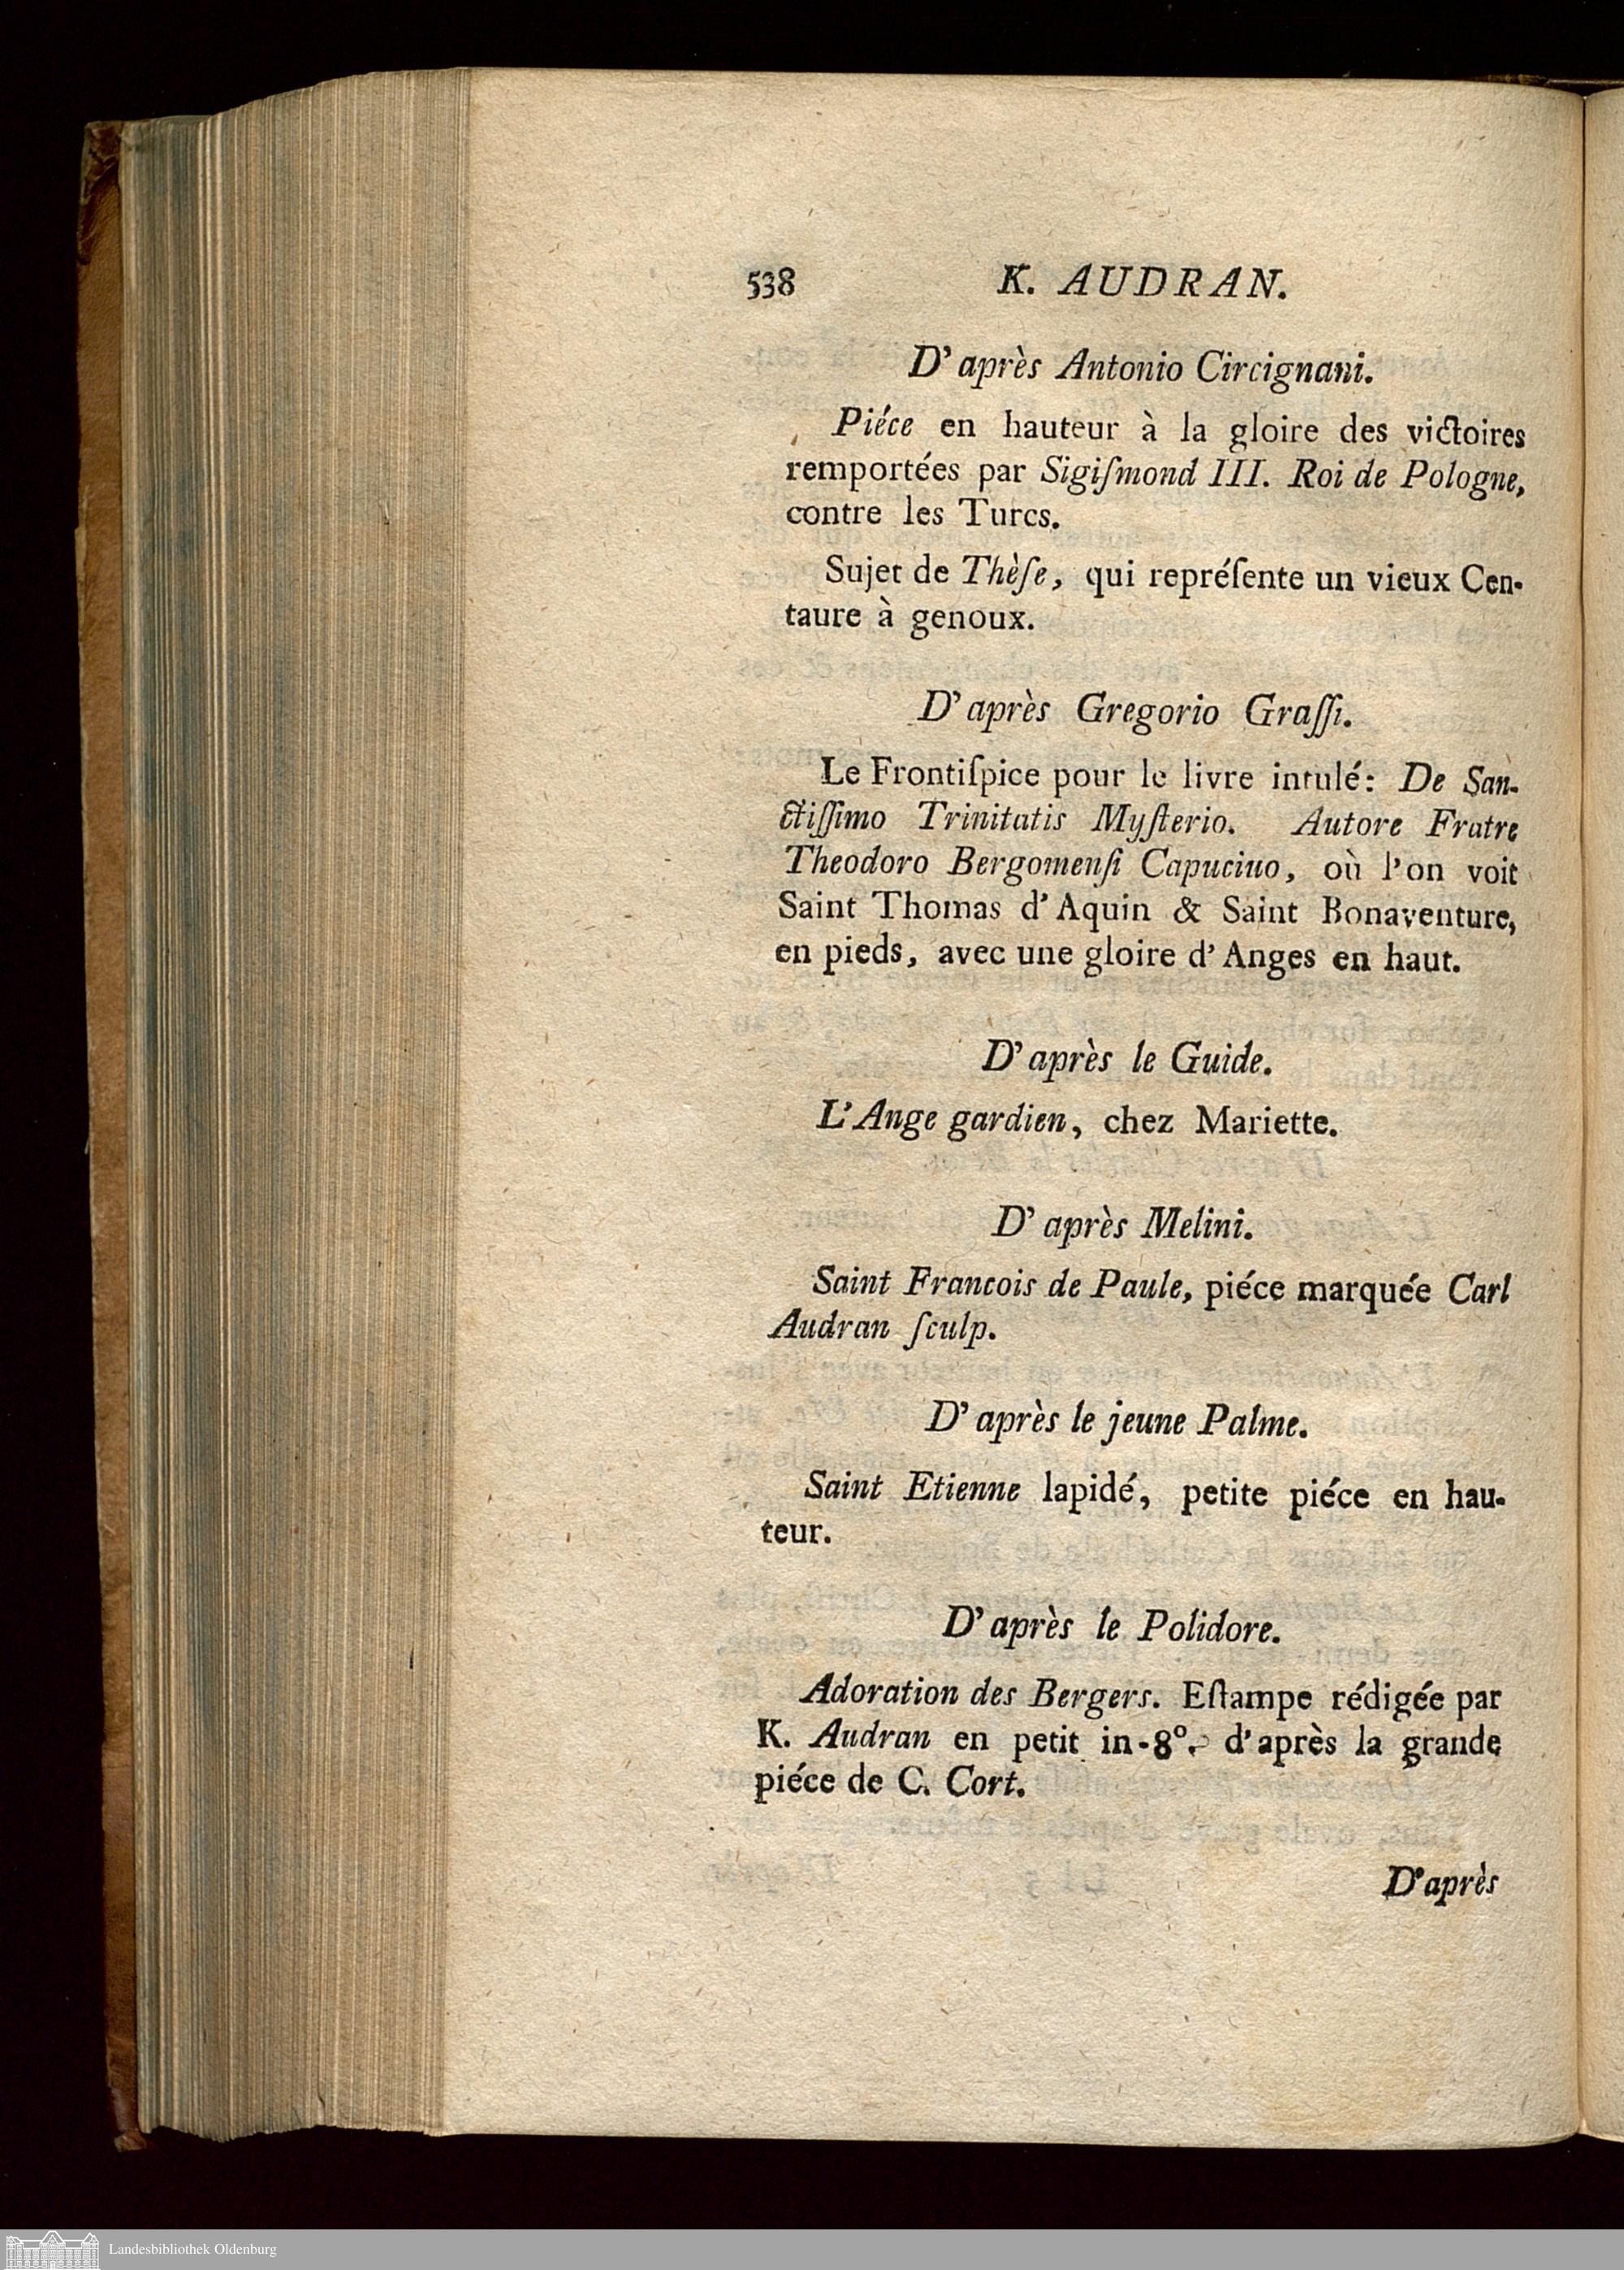 538 K. AUDRAN.
D' après Antonio Circignani.
Piéce en hauteur à la gloire des victoires
remportées par Sigiſmond III. Roi de Pologne,
contre les Turcs.
Sujet de Thèſe, qui repréſente un vieux Cen-
taure à genoux.
D' après Gregorio Graſſi.
Le Frontiſpice pour le livre intulé: De San-
ctiſſimo Trinitatis Myſterio. Autore Fratre
Theodoro Bergomenſi Capucino, où l'on voit
Saint Thomas d' Aquin & Saint Bonaventure,
en pieds, avec une gloire d' Anges en haut.
D' après le Guide.
L' Ange gardien, chez Mariette.
D' après Melini.
Saint Francois de Paule, piéce marquée Carl
Audran ſculp.
D' après le jeune Palme.
Saint Etienne lapidé, petite piéce en hau-
teur.
D' après le Polidore.
Adoration des Bergers. Eſtampe rédigée par
K. Audran en petit in-8°. d' après la grande
piéce de C. Cort.
D'après
Landesbibliothek Oldenburg